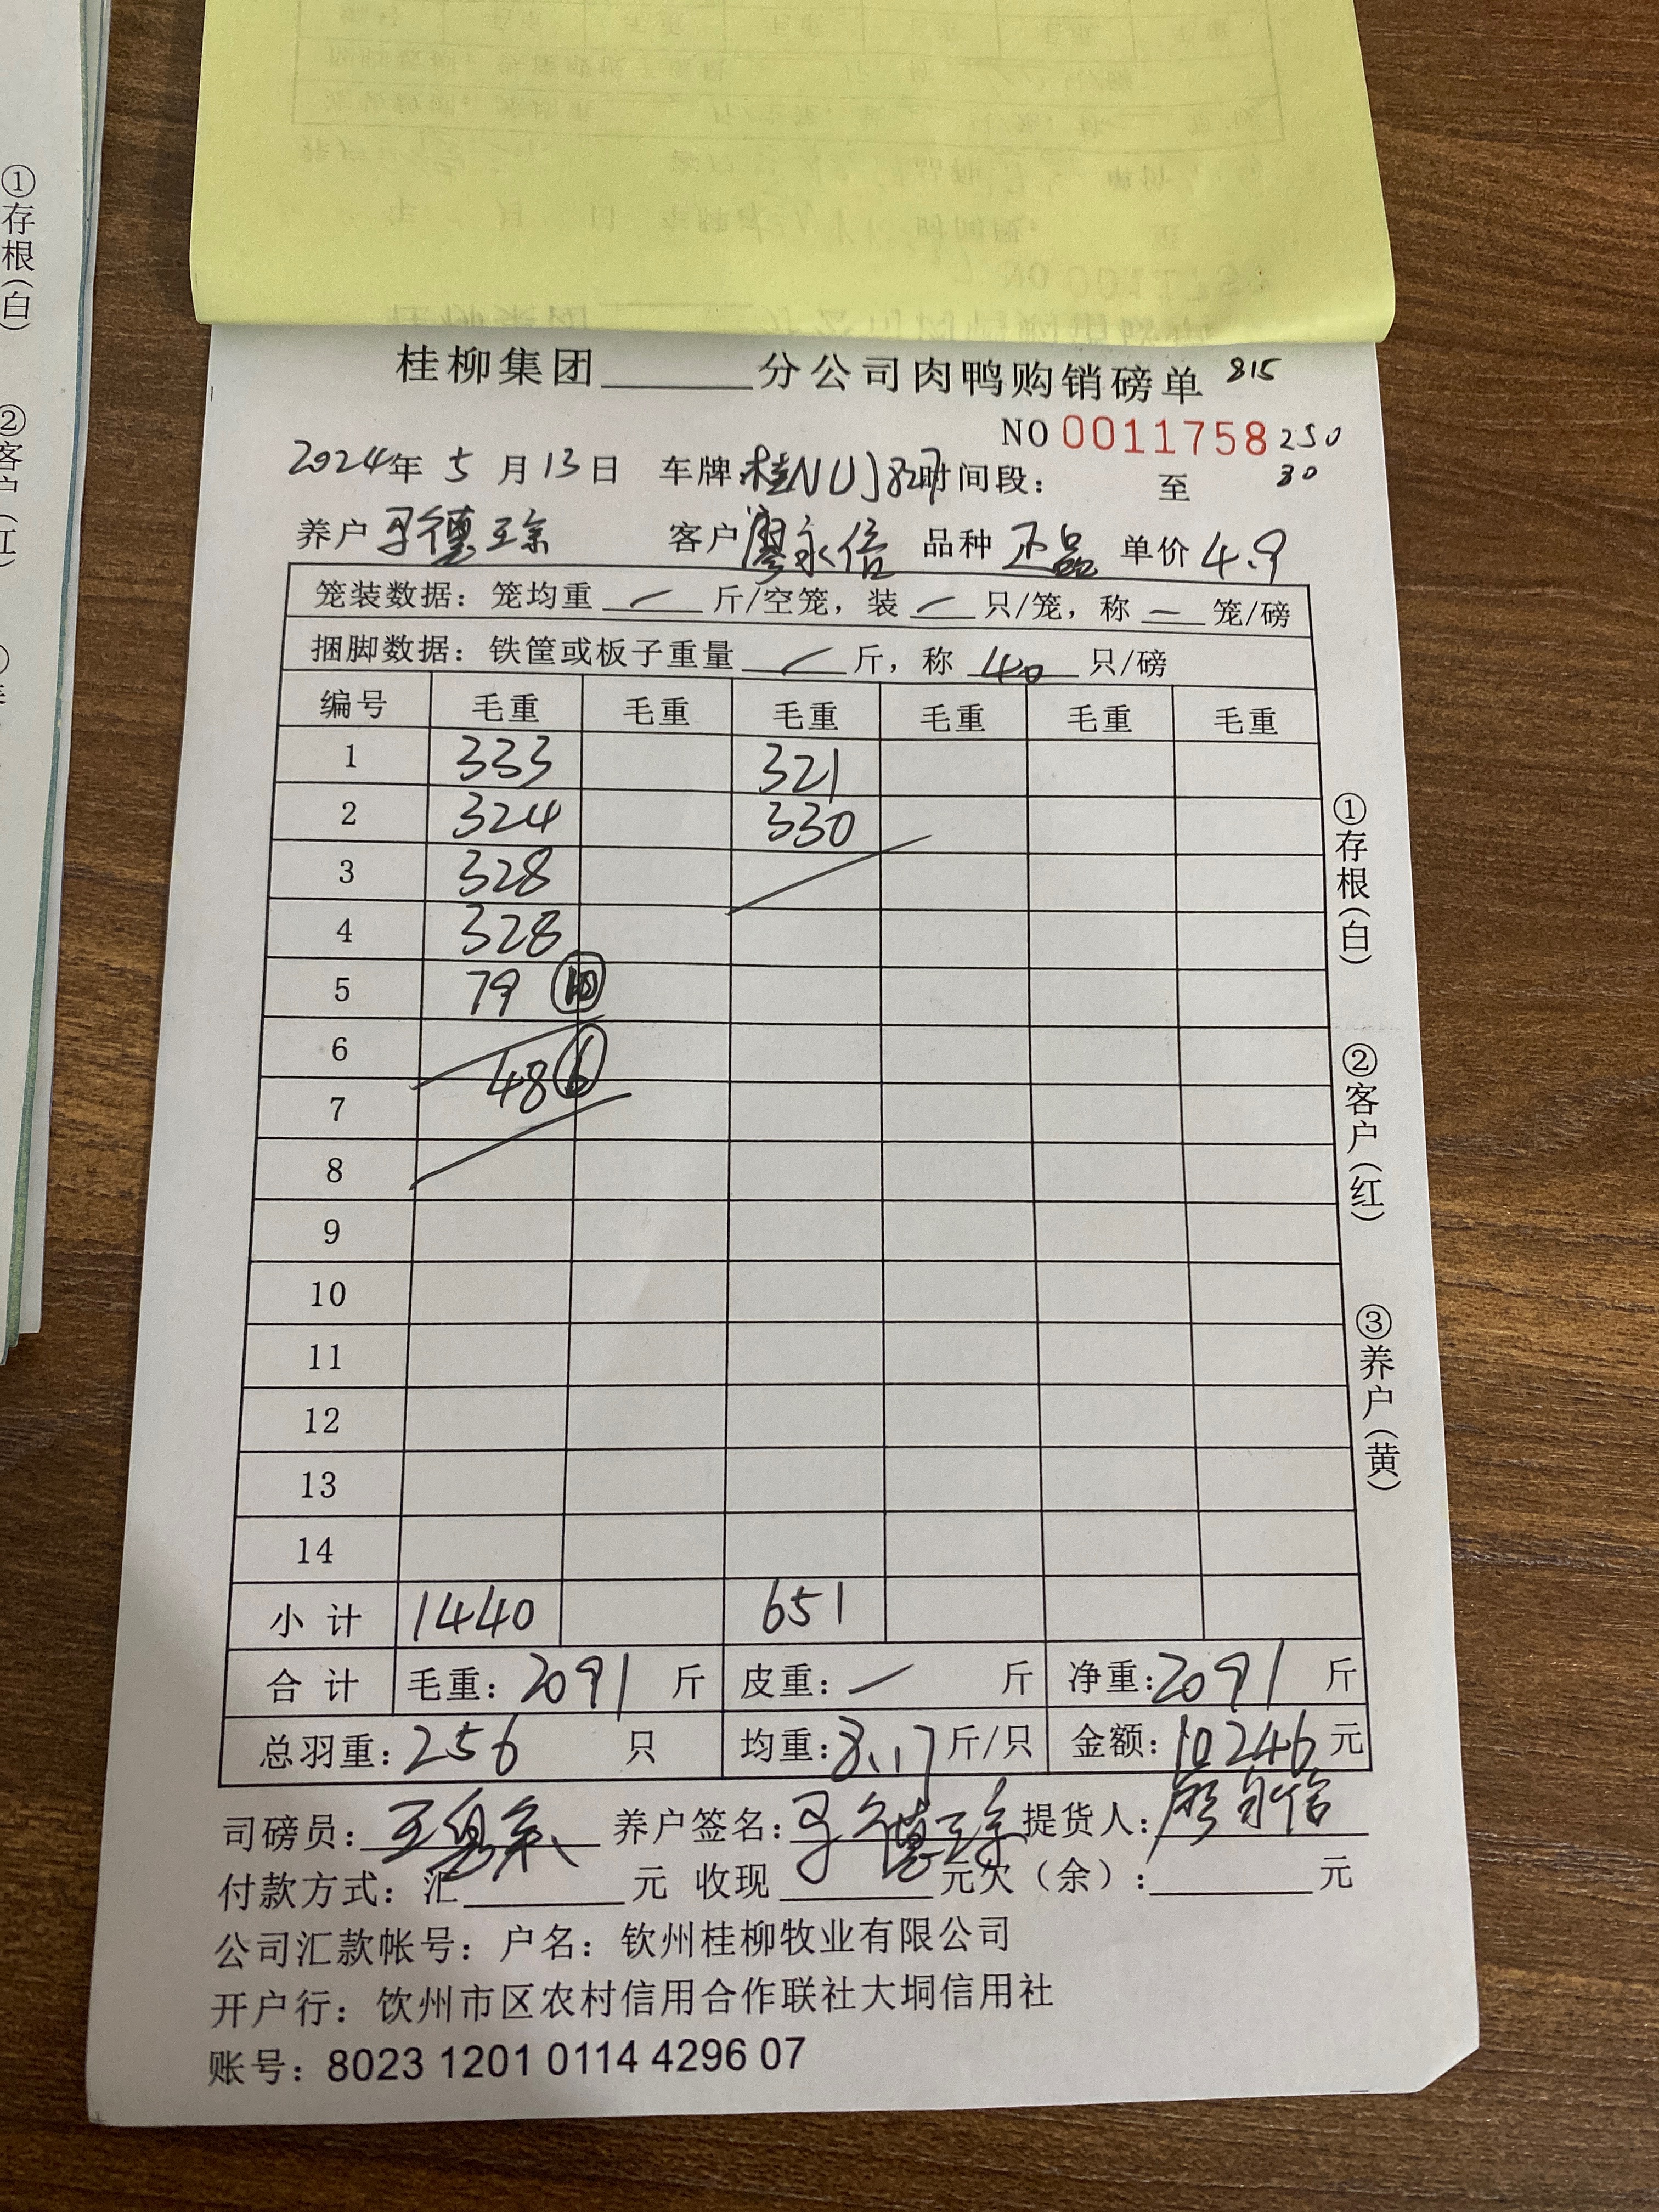 ①存根(白)
②客户(红)
桂柳集团______分公司肉鸭购销磅单 815
NO 0011758 250
2024年 5 月 13 日 车牌:桂NUJ827 时间段: 至 30
养户 客户 廖永信 品种 正品 单价 4.9
笼装数据: 笼均重 — 斤/空笼, 装 — 只/笼, 称 — 笼/磅
捆脚数据: 铁筐或板子重量 — 斤, 称 40 只/磅
编号 毛重 毛重 毛重 毛重 毛重 毛重
1 333 321
2 324 330
3 328
4 328
5 79 ⑩
6 48 ⑥
7
8
9
10
11
12
13
14
小 计 1440 651
合 计 毛重: 2091 斤 皮重: — 斤 净重: 2091 斤
总羽重: 256 只 均重: 8.17 斤/只 金额: 10246 元
司磅员: 养户签名: 提货人: 廖永信
付款方式: 汇______元 收现______元欠(余):______元
公司汇款帐号: 户名: 钦州桂柳牧业有限公司
开户行: 饮州市区农村信用合作联社大垌信用社
账号: 8023 1201 0114 4296 07
①存根(白)
②客户(红)
③养户(黄)